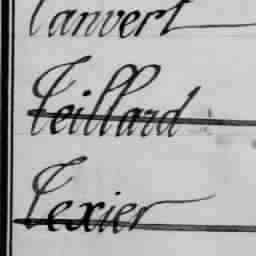 Tanvert
Teillard
Texier